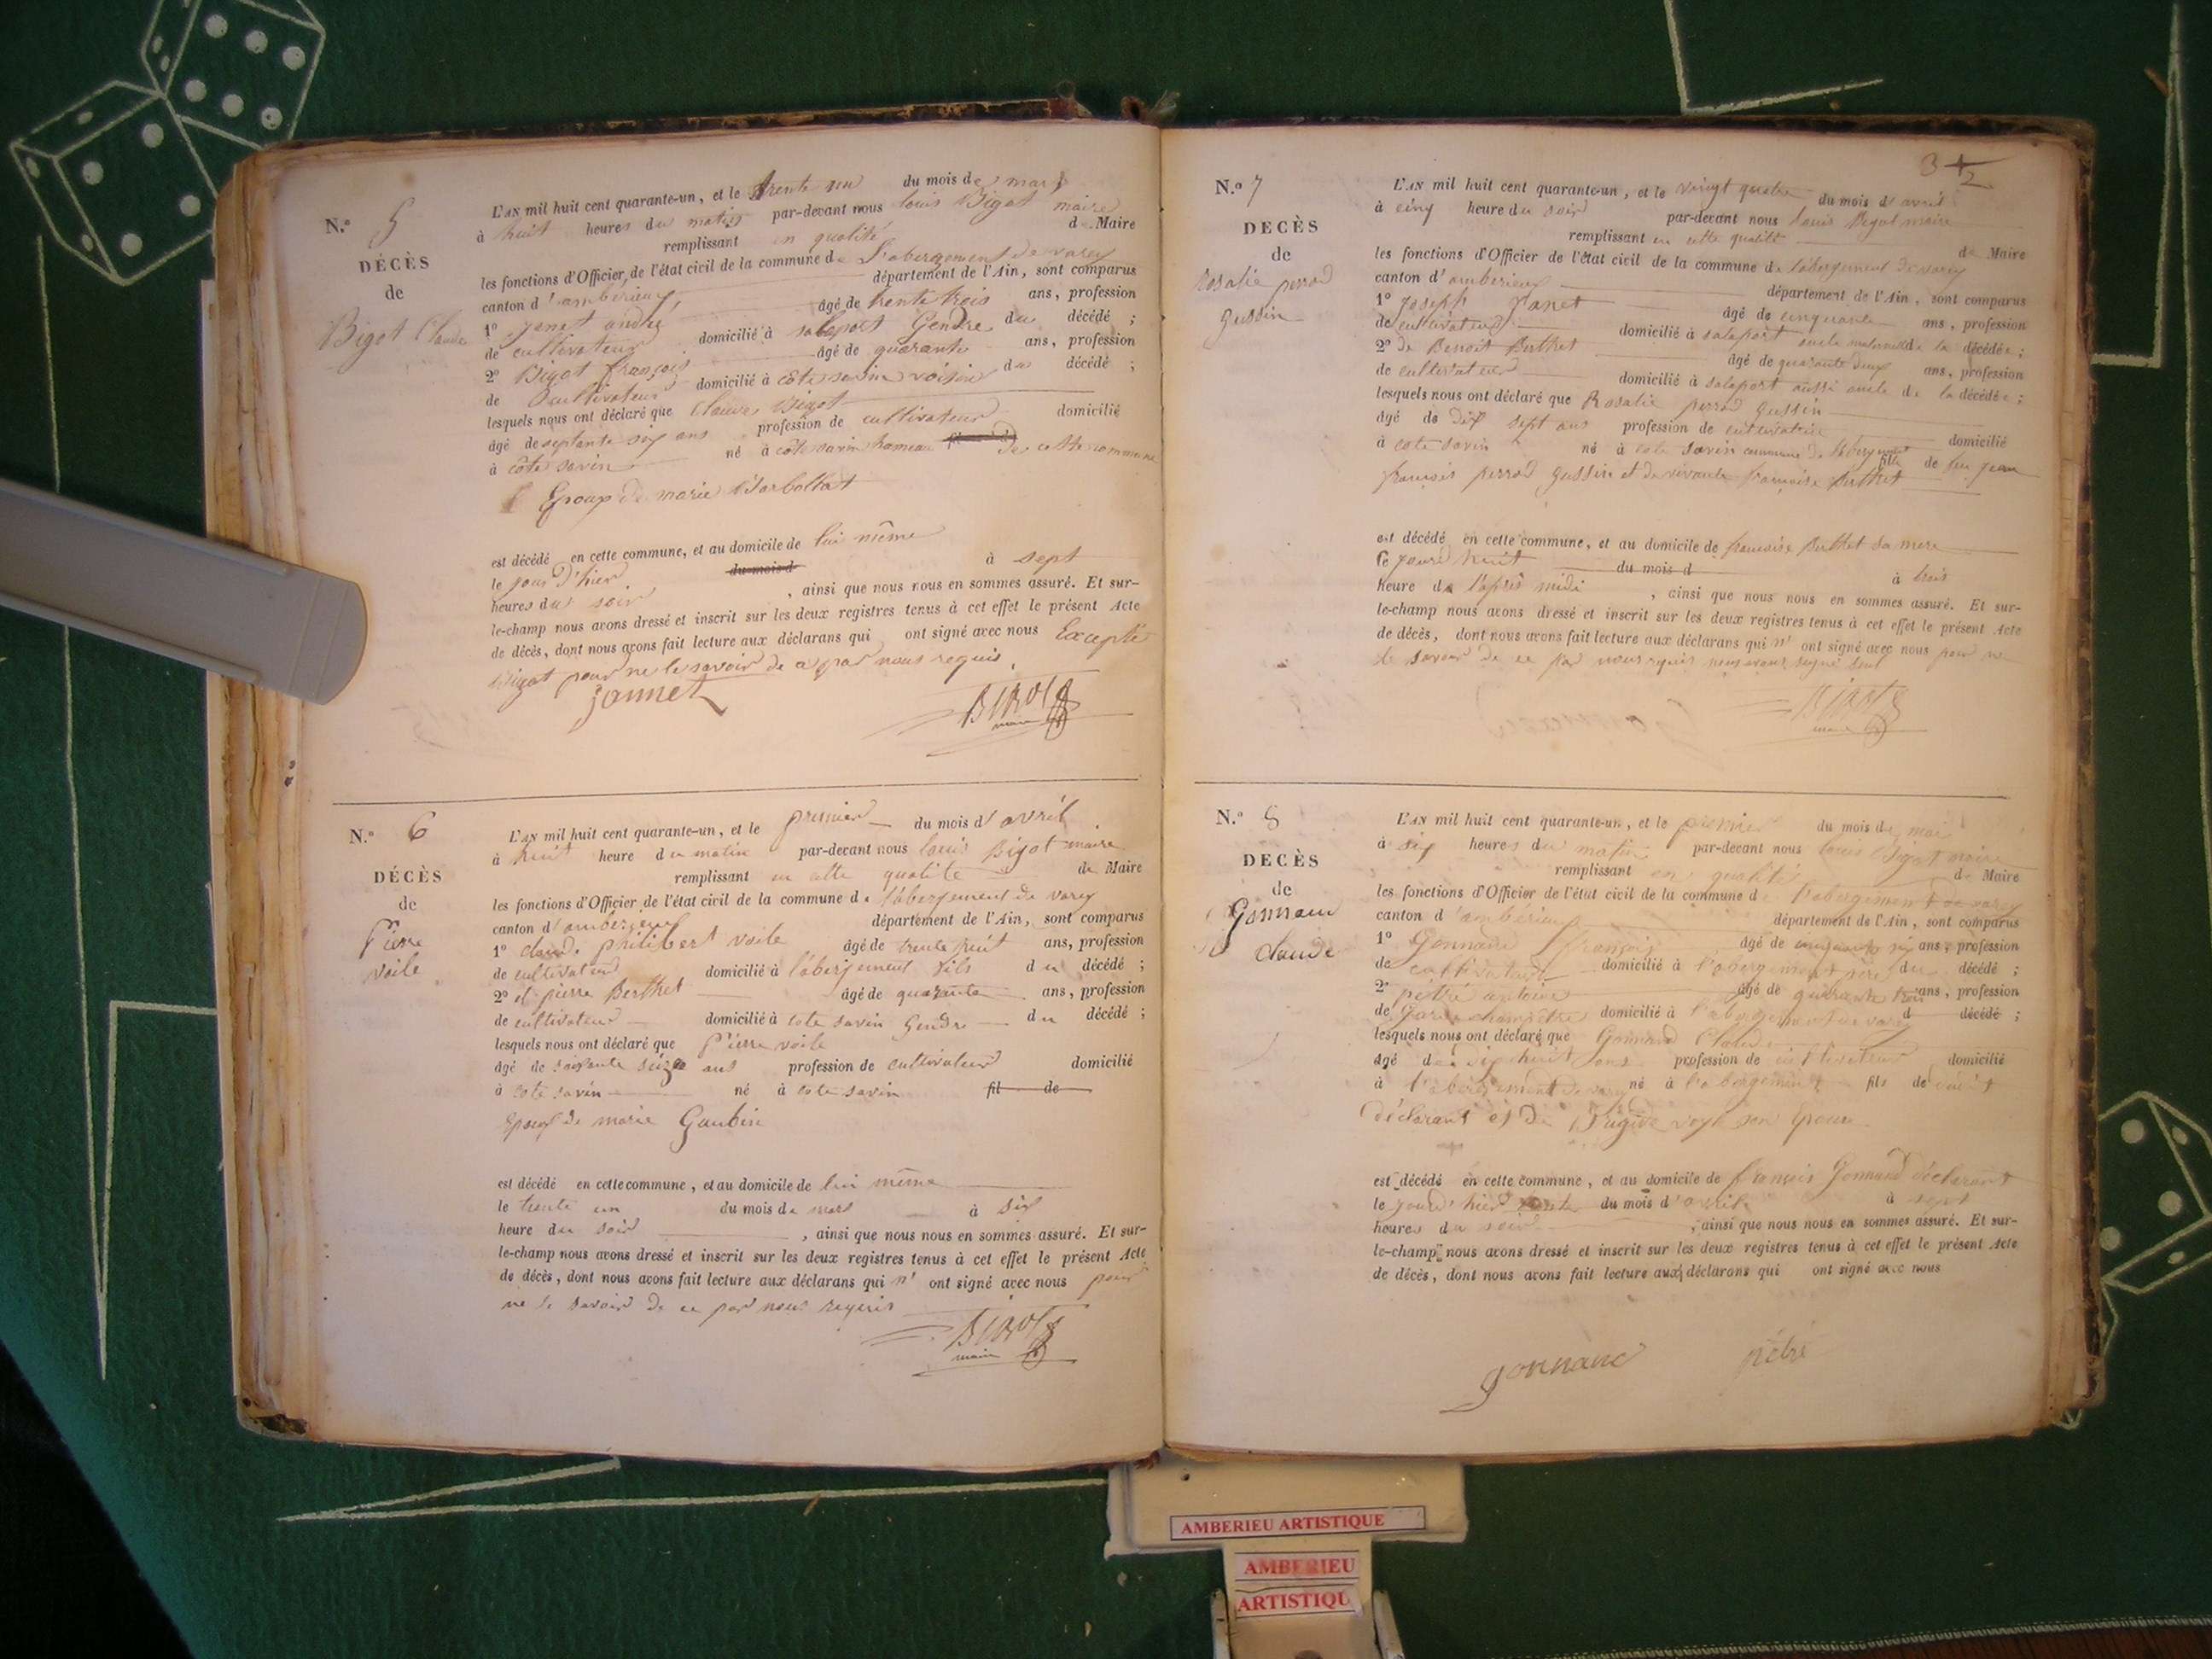 N.o 5
DÉCÈS
de
Bigot Claude
L'AN mil huit cent quarante-un, et le trente un du mois de mars
à huit heures du matin par-devant nous louis Bigot maire
remplissant en qualité de Maire
les fonctions d'Officier de l'état civil de la commune de l'abergement de varey
canton d'ambérieux département de l'Ain, sont comparus
1o Janet andré âgé de trente trois ans, profession
de cultivateur domicilié à salaport Gendre du décédé ;
2o Bigot françois âgé de quarante ans, profession
de cultivateur domicilié à côte savin voisin du décédé ;
lesquels nous ont déclaré que Claude Bigot
âgé de septante six ans profession de cultivateur domicilié
à côte savin né à côte savin hameau de cette commune
Epoux de marie
est décédé en cette commune, et au domicile de lui même
le jour d'hier du mois d à sept
heures du soir , ainsi que nous nous en sommes assuré. Et sur-
le-champ nous avons dressé et inscrit sur les deux registres tenus à cet effet le présent Acte
de décès, dont nous avons fait lecture aux déclarans qui ont signé avec nous Excepté
Bigot pour ne le savoir de ce par nous requis
Jannet BIGOT
maire
N.o 6
DÉCÈS
de
Pierre
voile
L'AN mil huit cent quarante-un, et le premier du mois d'avril
à huit heure du matin par-devant nous louis Bigot maire
remplissant en cette qualité de Maire
les fonctions d'Officier de l'état civil de la commune de l'abergement de varey
canton d'amberieux département de l'Ain, sont comparus
1o claude philibert voile âgé de trente huit ans, profession
de cultivateur domicilié à l'abergement fils du décédé ;
2o et pierre Berthet âgé de quarante ans, profession
de cultivateur domicilié à cote savin Gendre du décédé ;
lesquels nous ont déclaré que Pierre voile
âgé de soixante seize ans profession de cultivateur domicilié
à cote savin né à cote savin fil de
Epoux de marie Gaubin
est décédé en cette commune, et au domicile de lui même
le trente un du mois de mars à six
heure du soir , ainsi que nous nous en sommes assuré. Et sur-
le-champ nous avons dressé et inscrit sur les deux registres tenus à cet effet le présent Acte
de décès, dont nous avons fait lecture aux déclarans qui n' ont signé avec nous pour
ne le savoir de ce par nous requis
BIGOT
maire
N.o 7
DÉCÈS
de
Rosalie perrod
gussin
L'AN mil huit cent quarante-un, et le vingt quatre du mois d'avril
à cinq heure du soir par-devant nous Louis Bigot maire
remplissant en cette qualité de Maire
les fonctions d'Officier de l'état civil de la commune de l'abergement de varey
canton d'amberieux département de l'Ain, sont comparus
1o Joseph Janet âgé de cinquante ans, profession
de cultivateur domicilié à salaport oncle maternel de la décédée ;
2o de Benoit Berthet âgé de quarante deux ans, profession
de cultivateur domicilié à salaport aussi oncle de la décédée ;
lesquels nous ont déclaré que Rosalie perrod gussin
âgé de dix sept ans profession de cultivatrice domicilié
à cote savin né à cote savin commune de l'abergement fille de feu jean
françois perrod gussin et de vivante françoise Berthet
est décédé en cette commune, et au domicile de francoise Berthet sa mere
le jourd'huit du mois d à trois
heure de l'après midi , ainsi que nous nous en sommes assuré. Et sur-
le-champ nous avons dressé et inscrit sur les deux registres tenus à cet effet le présent Acte
de décès, dont nous avons fait lecture aux déclarans qui n' ont signé avec nous pour ne
le savoir de ce par nous requis nous avons signé seul
BIGOT
maire
N.o 8
DÉCÈS
de
Gonnaud
Claude
L'AN mil huit cent quarante-un, et le premier du mois de mai
à six heures du matin par-devant nous louis Bigot maire
remplissant en qualité de Maire
les fonctions d'Officier de l'état civil de la commune de l'abergement de varey
canton d'ambérieux département de l'Ain, sont comparus
1o Gonnaud françois âgé de cinquante six ans, profession
de cultivateur domicilié à l'abergement père du décédé ;
2o pétré antoine âgé de quarante trois ans, profession
de Garde champêtre domicilié à l'abergement de varey d décédé ;
lesquels nous ont déclaré que Gonnaud Claude
âgé de dix huit ans profession de cultivateur domicilié
à l'abergement de varey né à l'abergement fils de dudit
déclarant et de son Epouse
est décédé en cette commune, et au domicile de françois Gonnaud déclarant
le jourd'hier trente du mois d'avril à sept
heures du soir , ainsi que nous nous en sommes assuré. Et sur-
le-champ nous avons dressé et inscrit sur les deux registres tenus à cet effet le présent Acte
de décès, dont nous avons fait lecture aux déclarans qui ont signé avec nous
gonnaud pétré
AMBERIEU ARTISTIQUE
AMBERIEU
ARTISTIQU